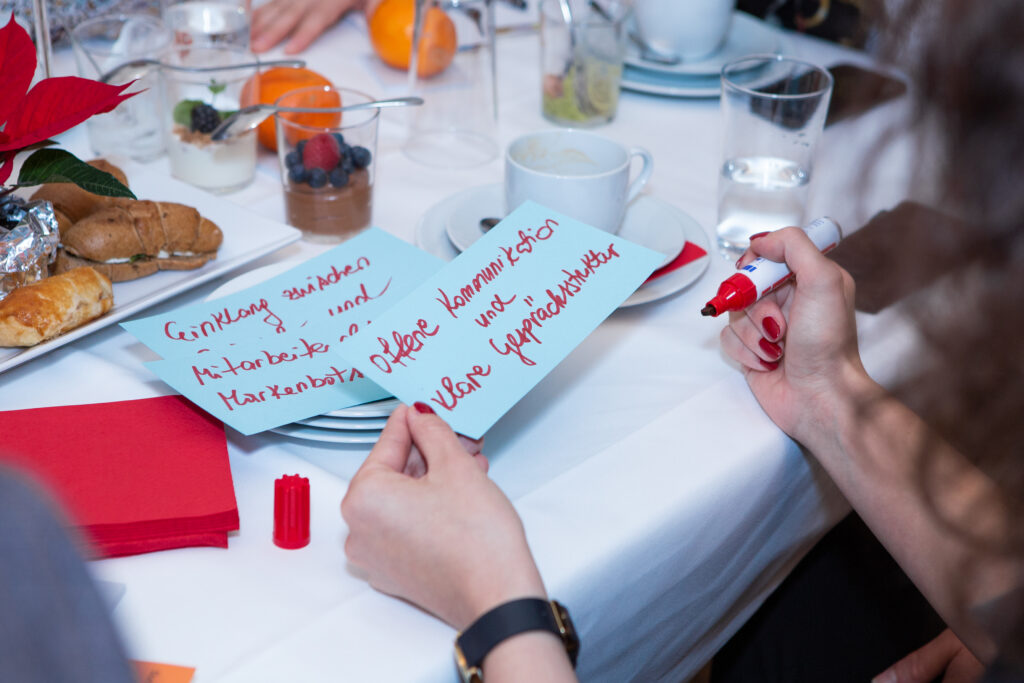 Einklang zwischen
und
Mitarbeiter
Markenbots
offene Kommunikation
und
klare Gesprächsstruktur